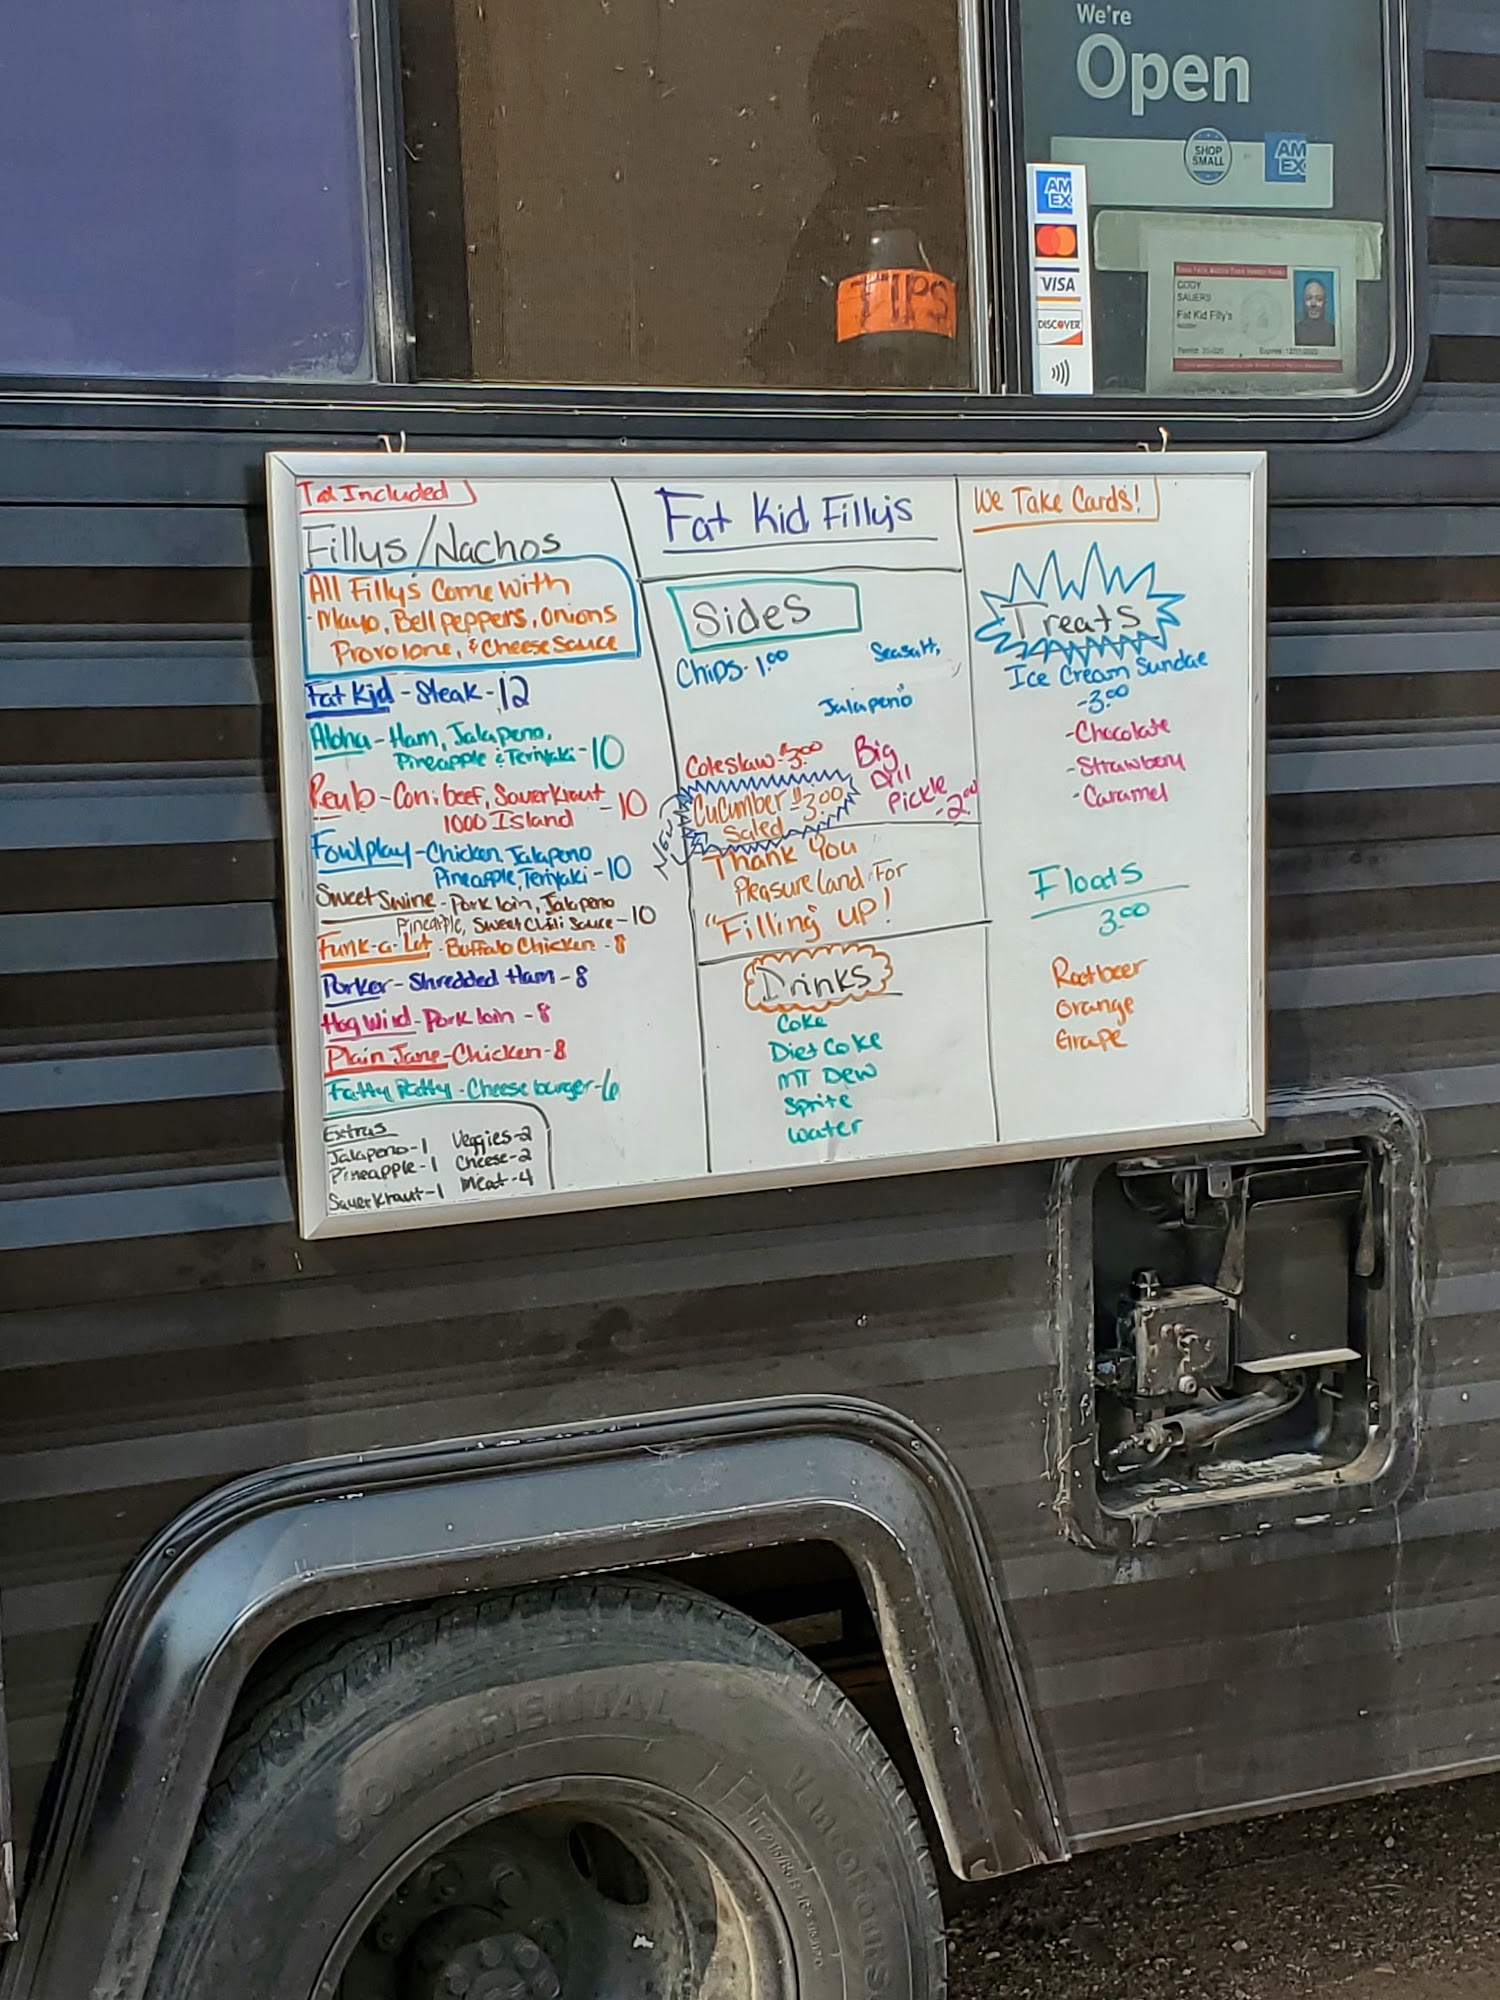 We're
Open
SHOP
SMALL
AM
EX
AM
EX
VISA
DISCOVER
CODY
SAUERS
Fat Kid Filly's
TIPS
Tax Included
Fillys/Nachos
All Filly's Come with
-Mayo, Bell peppers, onions
Provolone, & Cheese Sauce
Fat Kid - Steak - 12
Aloha - Ham, Jalapeno,
Pineapple & Teriyaki - 10
Reub - Corn beef, Sauerkraut
1000 Island - 10
Fowlplay - Chicken, Jalapeno
Pineapple, Teriyaki - 10
Sweet Swine - Pork loin, Jalapeno
Pineapple, Sweet Chili Sauce - 10
Funk-a-Let - Buffalo Chicken - 8
Porker - Shredded Ham - 8
Hog Wild - Pork loin - 8
Plain Jane - Chicken - 8
Fatty Patty - Cheese burger - 6
Extras
Jalapeno - 1 Veggies - 2
Pineapple - 1 Cheese - 2
Sauerkraut - 1 Meat - 4
Fat Kid Filly's
Sides
Chips - 1.00 Seasalt,
Jalapeño
Coleslaw - 3.00
Big
Dill
Pickle
- 2.00
New
Cucumber $3.00
Salad
Thank You
Pleasureland For
"Filling" up!
Drinks
Coke
Diet Coke
MT Dew
Sprite
Water
We Take Cards!
Treats
Ice Cream Sundae
-3.00
-Chocolate
-Strawbery
-Caramel
Floats
3.00
Rootbeer
Orange
Grape
CONTINENTAL